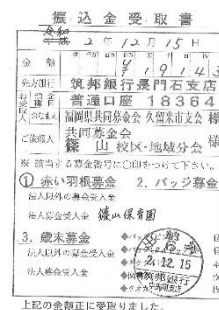 振込金受取書
令和 2年12月15日
金額 ¥19143
先方銀行 筑邦銀行長門石支店
普通口座 18364
おなまえ 福岡県共同募金会 久留米市支会 様
共同募金会
ご依頼人 篠山校区・地域分会 様
※ 該当する募金番号に〇印をつけて下さい。
① 赤い羽根募金 2. バッジ募金
法人以外の募金受入金
法人募金受入金 篠山保育園
3. 歳末募金
法人以外の募金受入金
法人募金受入金
2.12.15
上記の金額正に受取りました。